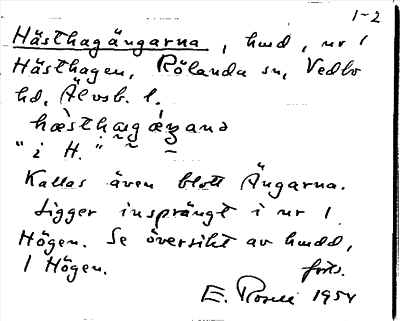 1-2
Hästhagängarna, hmd, nr 1
Hästhagen, Rölanda sn, Vedbo
hd, Älvsb. l.
hæ̀sthagæŋana
"i H."
Kallas även blott Ängarna.
Ligger insprängt i nr 1
Högen. Se översikt av hmdd,
1 Högen. forts.
E. Rosell 1954